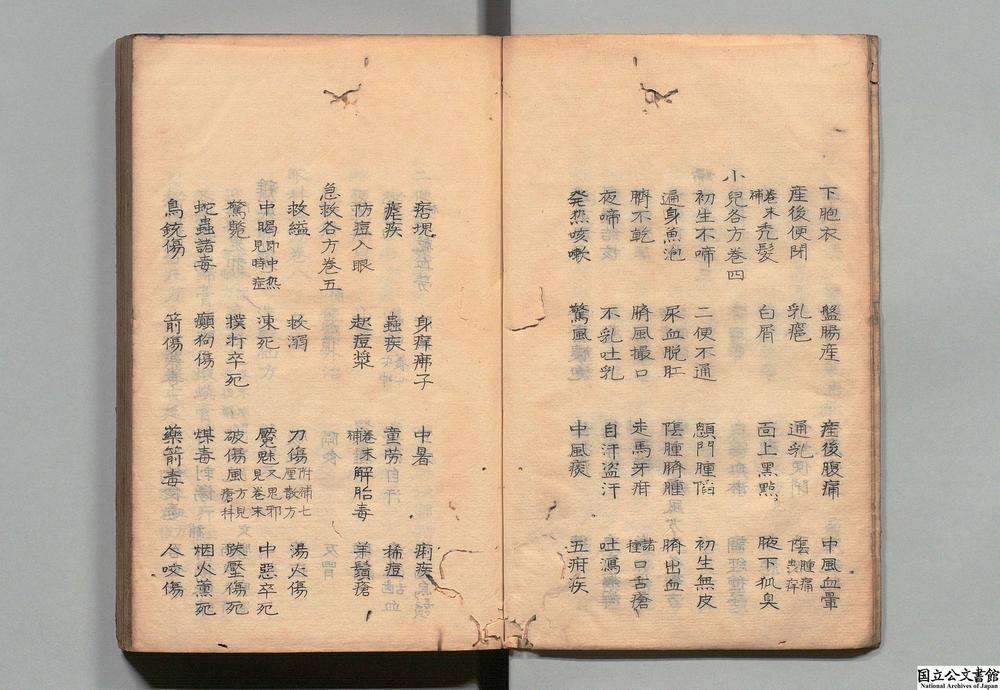 下胞衣 盤腸産 産後腹痛 中風血暈
産後便閉 乳癰 通乳 陰腫痛喪痒
卷末補禿髮 白屑 面上黑點 腋下狐臭
小兒各方卷四
初生不啼 二便不通 顖門腫陷 初生無皮
遍身魚泡 尿血脱肛 陰腫臍腫 臍出血
臍不乾 臍風撮口 走馬牙疳 諸種口舌瘡
夜啼 不乳吐乳 自汗盗汗 吐瀉
発热咳嗽 驚風 中風痰 五疳疾
痞塊 身痒疿子 中暑 痢疾
瘧疾 蟲疾 童労 稀痘
防痘入眼 起痘漿 卷末補解胎毒 羊鬚瘡
急救各方卷五
救縊 救溺 刀傷附補七厘散方 湯火傷
中暍即中热見時症 凍死 魘魅又思邪見卷末 中惡卒死
驚斃 撲打卒死 破傷風方見瘡科 跌壓傷死
蛇蟲諸毒 癲狗傷 煤毒 烟火薰死
鳥銃傷 箭傷 藥箭毒 人咬傷
国立公文書館
National Archives of Japan